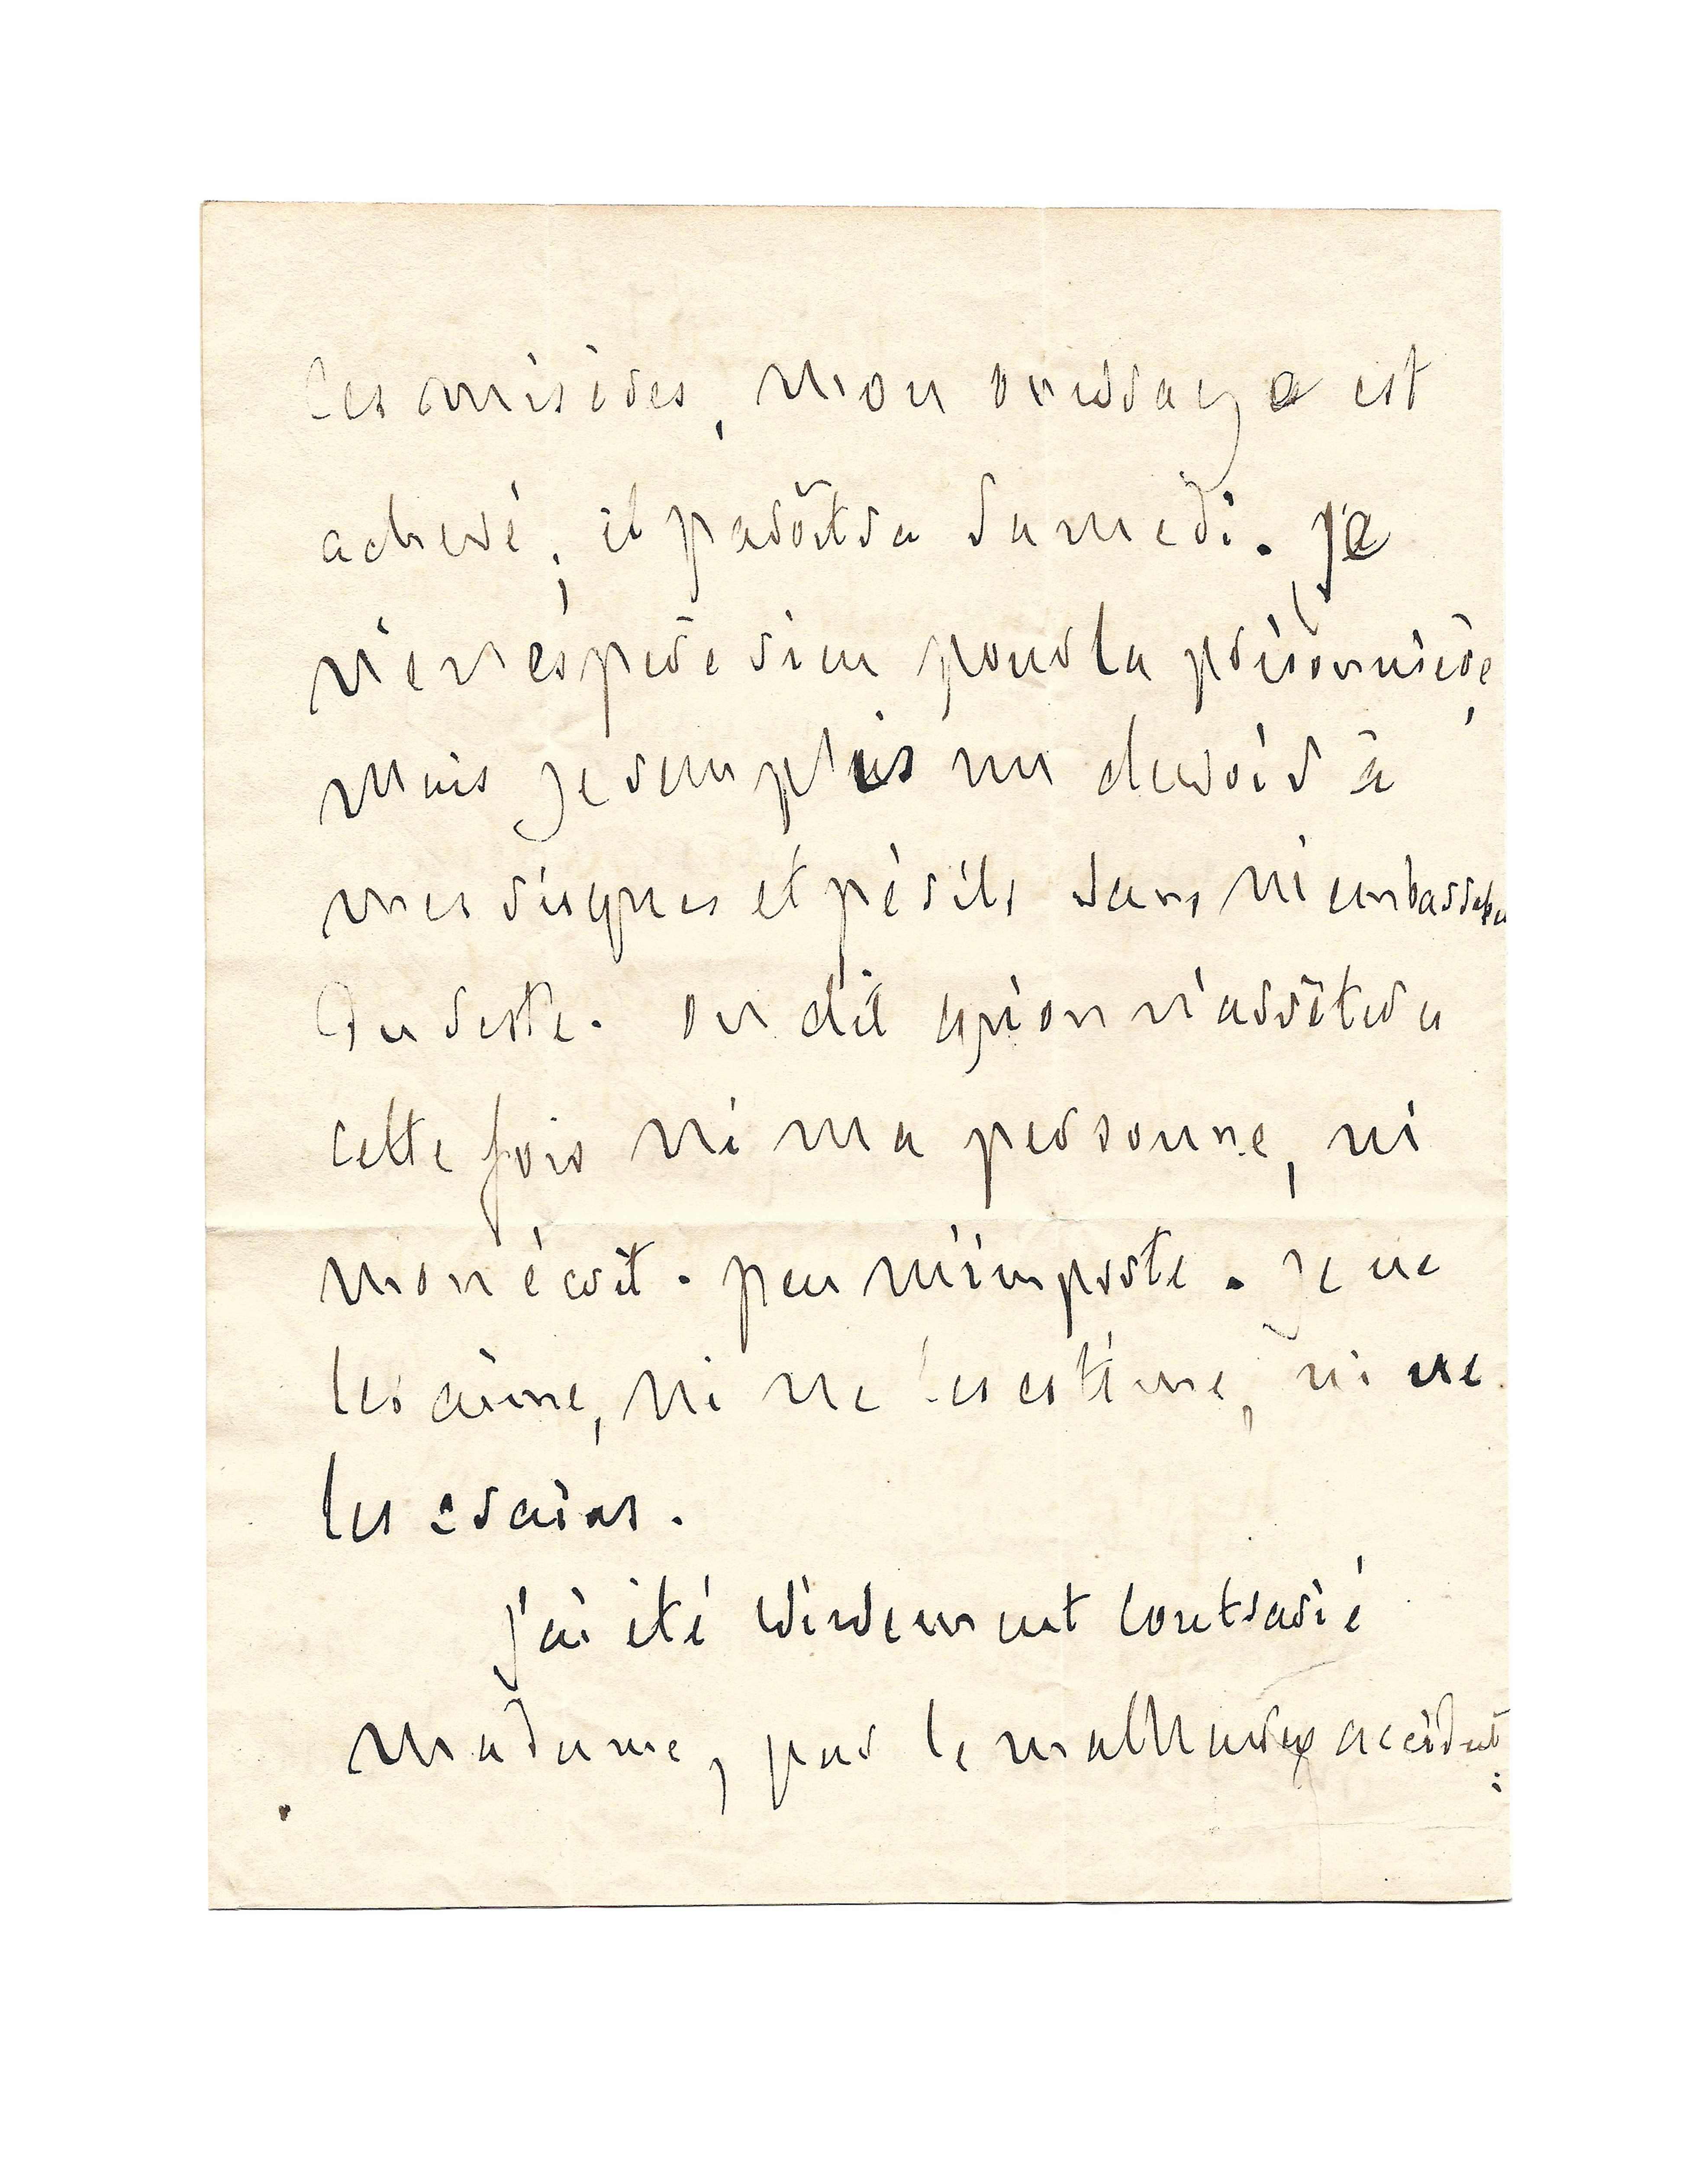 ces misères, mon ouvrage est
achevé; il paroîtra samedi. Je
n'en espère rien pour la prisonnière,
mais je remplis un devoir à
mes risques et périls sans m'embarrasser
du reste. on dit qu'on n'arrêtera
cette fois ni ma personne, ni
mon écrit. peu m'importe. je ne
les aime, ni ne les estime, ni ne
les crains.
j'ai été vivement contrarié
madame, par le malheureux accident